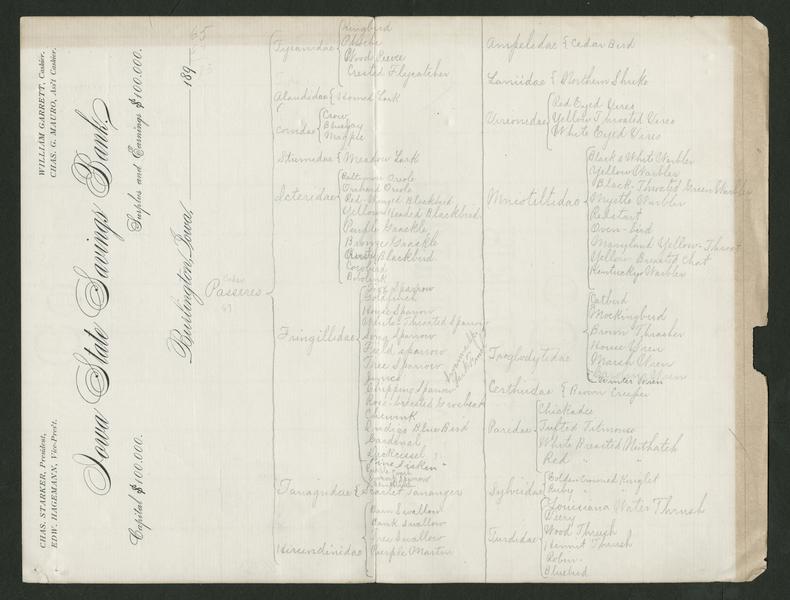 CHAS. STARKER, President,
EDW. HAGEMANN, Vice-Pres't.
WILLIAM GARRETT, Cashier.
CHAS. G. MAURO, Ass't Cashier.
Iowa State Savings Bank.
Capital $100.000.
Surplus and Earnings $100.000.
Burlington, Iowa, 189
65
Order
Passeres
Tyranidae
Kingbird
Phoebe
Wood Peewee
Crested Flycatcher
Alaudidae { Horned Lark
Corvidae
Crow
Bluejay
Magpie
Sturnidae { Meadow Lark
Icteridae
Baltimore Oriole
Orchard Oriole
Red-Winged Blackbird
Yellow Headed Blackbird
Purple Grackle
Bronze Grackle
Rusty Blackbird
Cowbird
Bobolink
Fringillidae
Fox Sparrow
Goldfinch
House Sparrow
White-Throated Sparrow
Song Sparrow
Field Sparrow
Tree Sparrow
Junco
Chipping Sparrow
Rose-breasted Grosbeak
Chewink
Indigo Blue Bird
Cardinal
Dickcissel
Pine Siskin
Purple Finch
Tanagridae { Scarlet Tanager
Hirundinidae
Barn Swallow
Bank Swallow
Tree Swallow
Purple Martin
Ampelidae { Cedar Bird
Laniidae { Northern Shrike
Vireonidae
Red Eyed Vireo
Yellow Throated Vireo
White Eyed Vireo
Mniotiltidae
Black & White Warbler
Yellow Warbler
Black-Throated Green Warbler
Myrtle Warbler
Redstart
Oven-bird
Maryland Yellow-Throat
Yellow-Breasted Chat
Kentucky Warbler
Troglodytidae
Catbird
Mockingbird
Brown Thrasher
House Wren
Marsh Wren
Carolina Wren
Winter Wren
Certhiidae { Brown Creeper
Paridae
Chickadee
Tufted Titmouse
White Breasted Nuthatch
Red " "
Sylviidae
Golden Crowned Kinglet
Ruby " "
Turdidae
Louisiana Water Thrush
Veery
Wood Thrush
Hermit Thrush
Robin
Bluebird